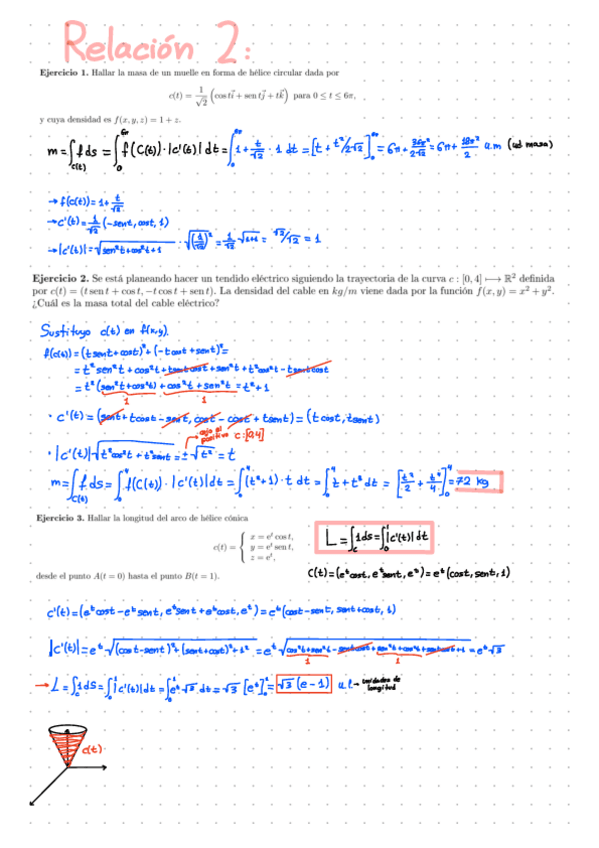 Relación 2:
Ejercicio 1. Hallar la masa de un muelle en forma de hélice circular dada por
c(t) = 1/√2 (cos t i⃗ + sen t j⃗ + t k⃗) para 0 ≤ t ≤ 6π,
y cuya densidad es f(x, y, z) = 1 + z.
m = ∫_{c(t)} f ds = ∫_0^{6π} f(c(t))·|c'(t)| dt = ∫_0^{6π} 1 + t/√2 · 1 dt = [t + t²/2√2]_0^{6π} = 6π + 36π²/2√2 = 6π + 18π²/2 u.m (ud masa)
→ f(c(t)) = 1 + t/√2
→ c'(t) = 1/√2 (-sent, cost, 1)
→ |c'(t)| = √(sen²t+cos²t+1) · √((1/√2)²) = 1/√2 √(1+1) = √2/√2 = 1
Ejercicio 2. Se está planeando hacer un tendido eléctrico siguiendo la trayectoria de la curva c : [0, 4] ⟼ ℝ² definida
por c(t) = (t sen t + cos t, −t cos t + sen t). La densidad del cable en kg/m viene dada por la función f(x, y) = x² + y².
¿Cuál es la masa total del cable eléctrico?
Sustituyo c(t) en f(x,y).
f(c(t)) = (t sent + cost)² + (-t cost + sent)² =
= t² sen²t + cos²t + tsent cost + sen²t + t²cos²t - tsent cost
= t² (sen²t + cos²t) + cos²t + sen²t = t² + 1
1 1
· c'(t) = (sent + tcost - sent, cost - cost + tsent) = (t cost, t sent)
cojo el
positivo c:[0,4]
· |c'(t)| √(t²cos²t + t²sent) = ± √t² = t
m = ∫_{c(t)} f ds = ∫_0^4 f(c(t))·|c'(t)| dt = ∫_0^4 (t²+1)·t dt = ∫_0^4 t + t³ dt = [t²/2 + t⁴/4]_0^4 = 72 kg
Ejercicio 3. Hallar la longitud del arco de hélice cónica
c(t) = { x = eᵗ cos t,
y = eᵗ sen t,
z = eᵗ,
L = ∫_c 1 ds = ∫_0^1 |c'(t)| dt
desde el punto A(t = 0) hasta el punto B(t = 1).
c(t) = (eᵗcost, eᵗsent, eᵗ) = eᵗ(cost, sent, 1)
c'(t) = (eᵗcost - eᵗsent, eᵗsent + eᵗcost, eᵗ) = eᵗ(cost-sent, sent+cost, 1)
|c'(t)| = eᵗ √((cost-sent)² + (sent+cost)² + 1²) = eᵗ √(cos²t + sen²t - sentcost + sen²t + cos²t + sentcost + 1) = eᵗ√3
1 1
→ L = ∫_c 1 ds = ∫_0^1 |c'(t)| dt = ∫_0^1 eᵗ√3 dt = √3 [eᵗ]_0^1 = √3 (e - 1) u.l → unidades de
longitud
c(t)